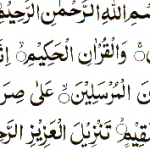 بِسْمِ اللّٰهِ الرَّحْمٰنِ الرَّحِيْمِ
وَالْقُرْاٰنِ الْحَكِيْمِ
الْمُرْسَلِيْنَ عَلٰى
تَنْزِيْلَ الْعَزِيْزِ